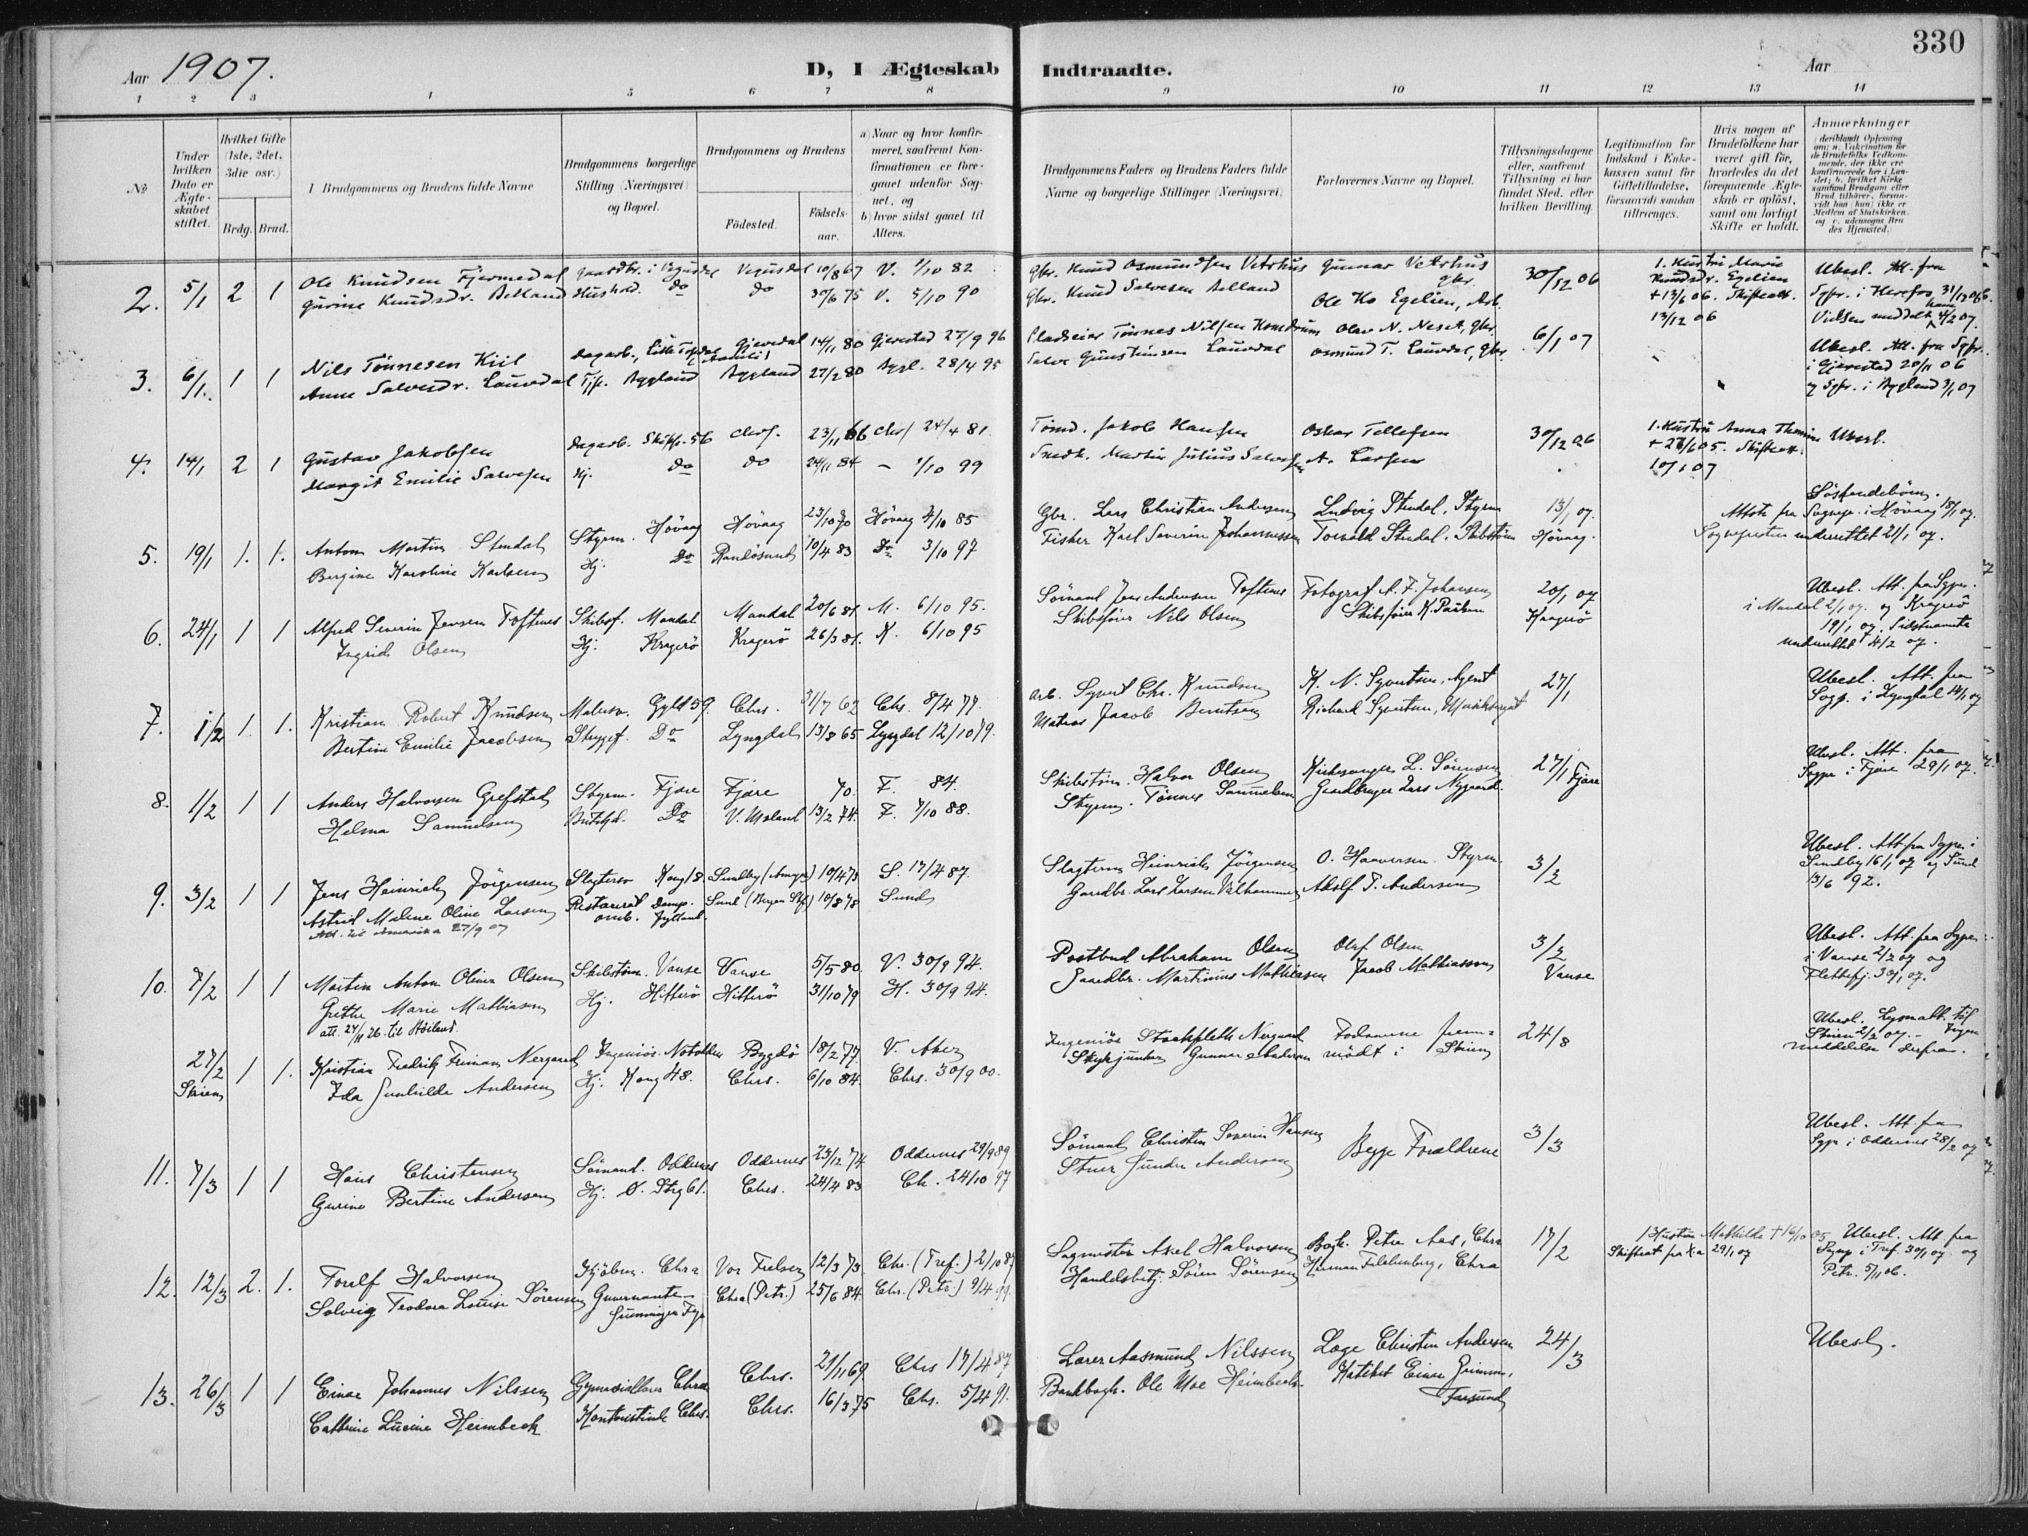 330
Aar 1907.
D, I Ægteskab Indtraadte.
Aar
1 2 3 4 5 6 7 8 9 10 11 12 13 14
No
Under hvilken Dato er Ægteskabet stiftet.
Hvilket Gifte (1ste, 2det, 3die osv.)
Brdg. Brud.
Brudgommens og Brudens fulde Navne
Brudgommens borgerlige Stilling (Næringsvei) og Bopæl.
Brudgommens og Brudens
Fødested.
Fødselsaar.
a) Naar og hvor konfirmeret, saafremt Konfirmationen er foregaaet udenfor Sognet, og
b) hvor sidst gaaet til Alters.
Brudgommens Faders og Brudens Faders fulde Navne og borgerlige Stillinger (Næringsvei)
Forlovernes Navne og Bopæl.
Tillysningsdagene eller, saafremt Tillysning ei har fundet Sted, efter hvilken Bevilling.
Legitimation for Indskud i Enkekassen samt for Giftetilladelse, forsaavidt saadan tiltrænges.
Hvis nogen af Brudefolkene har været gift før, hvorledes da det foregaaende Ægteskab er opløst, samt om lovligt Skifte er holdt.
Anmærkninger
2. 5/1 2 1 Ole Knudsen Fjermedal Gaardbr. i Vegusdal Vegusdal 10/8 67 V. 1/10 82
Gurine Knudsdr. Belland Hushold. do do 30/6 75 V. 5/10 90
Gbr. Knud Osmundsen Vetrhus Gunnar Vetrhus gbr. 30/12 06
Gbr. Knud Salvesen Belland Ole Ks Egelien, Arb.
1. Hustru Maria Knudsdr. Egelien + 13/6 06. Skifteatt. 13/12 06
Ubesl. Att. fra Sgpr. i Herefos 31/12 06
3. 6/1 1 1 Nils Tønnesen Kiil Dagarb., Gjerestad 27/9 96
Anne Salvesdr. Lauvdal Tjp. Bygland Bygland 27/2 80 Bygl. 28/4 95
Pladseier Tønnes Nilsen Olav N. Neset, gbr. 6/1 07
Salve Gunstensen Lauvdal Osmund T. Lauvdal, gbr.
Ubesl. Att. fra Sgpr. i Gjerestad 20/11 06
og Sgpr. i Bygland 3/1 07
4. 14/1 2 1 Gustav Jakobsen Dagarb. Skippg. 56 Chrs. 23/11 66 Chrs 24/4 81
Margit Emilie Salvesen Hj. do do 24/11 84 - 1/10 99
Tømd. Jakob Hansen Oskar Tellefsen 30/12 06
Smedk. Martin Julius Salvesen A. Larsen
1. Hustru Anna + 28/6 05. Skifteatt. 10/1 07
Ubesl.
5. 19/1 1. 1. Anton Martin Stendal Styrm. Høvaag Høvaag 23/10 70 Høvaag 4/10 85
Bergine Karoline Karlsen Hj. Do Randøsund 10/4 83 Do 3/10 97
Gbr. Lars Christian Andersen Ludvig Stendal, Styrm 13/1 07.
Fisker Karl Severin Johannessen Torvald Stendal, Skibstøm Høvaag.
Søskendebørn.
Attest fra Sognepr. i Høvaag 18/1 07.
Sognepresten underrettet 21/1 07.
6. 24/1 1 1 Alfred Severin Jensen Toftenes Skibsf. Mandal Mandal 20/6 81 M. 6/10 95.
Ingrid Olsen Hj. Kragerø Kragerø 26/3 81. K. 6/10 95
Sømand Jens Andersen Toftenes Fotograf A. F. Johansen 20/1 07
Skibsfører Nils Olsen Skibsfører K. Paulsen Kragerø
Ubesl. Att. fra Sgpr. i Mandal 2/1 07. og Kragerø
19/1 07. Sidstnævnte
underrettet 4/2 07.
7. 1/2 1. 1. Kristian Robert Knudsen Malersv. Gyld 59 Chrs. 31/7 62 Chs. 8/4 77.
Bertine Emilie Jacobsen Do Lyngdal 13/8 65 Lyngdal 12/10 79.
Arb. Syvert Chr. Knudsen K. N. Syvertsen, Agent 27/1
Matros Jacob Berntsen Richard Syvertsen,
Ubesl. Att. fra Sogp. i Lyngdal 14/1 07
8. 1/2 1 1 Anders Halvorsen Grefstad Styrm. Fjære Fjære 70. F. 84.
Helma Samuelsen Do V. Moland 13/2 74. F. 7/10 88.
Skibstøm. Halvor Olsen Kirkesanger L. Sørensen 27/1 Fjære
Styrm. Tønnes Samuelsen Gaardbruger Lars Nygaard.
Ubesl. Att. fra Sogpr i Fjære 29/1 07.
9. 3/2 1 1 Jens Heinrich Jörgensen Slagtersv Kong 18. Sundby (Amager) 10/4 73 S. 17/4 87.
Astrid Malene Oline Larsen Sund (Bergen Stf) 10/8 78 Sund
Att. til Amerika 27/9 07
Slagterm Heinrich Jörgensen O. Haaversen Styrm. 3/2
Gaardbr. Lars Larsen Vilhammer Adolf T. Andersen
Ubesl. Att. fra Sgpr. i Sundby 16/1 07 og Sund 13/6 92.
10. 7/2 1 1 Martin Anton Oliver Olsen Skibstøm. Vanse Vanse 5/5 80. V. 30/9 94.
Grethe Marie Mathiasen Hj. Hitterø Hitterø 31/10 79 H. 30/9 94.
att. 24/11 26. til Høiland.
Postbud Abraham Olsen Oluf Olsen 3/2
Gaardbr. Martinius Mathiasen Jacob Mathiassen Vanse
Ubesl. Att. fra Sgpr. i Vanse 2/2 07 og
Flekkefj. 30/1 07.
27/2 Skien 1 1. Kristian Fredrik Nergaard Ingeniör. Notodden Bygdö 18/2 77 V. Aker
Ida Gunhilde Andersen Hj. Kong 48. Chrs. 6/10 84. Chrs. 30/9 00.
Ingeniör Nergaard Forloverne frem- 24/8
Gunnar Andersen mødt i Skien
Ubesl. Lysnatt. til Skien 2/2 07. - Ingen
meddelelse derfra.
11. 7/3 1 1 Hans Christensen Sömand. Oddernes Oddernes 23/12 74 Oddernes 29/9 89
Gurine Bertine Andersen Hj. Ø. Strg 61. Chrs. 24/4 83 Ch. 24/10 97
Sömand Christen Severin Hansen Begge Forældrene 3/3
Stuer Gunder Andersen
Ubesl. Att. fra Sgpr. i Oddernes 28/2 07
12. 12/3 2. 1. Torolf Halvorsen Kjöbm. Chra Vor Frelser 12/3 73. Chr. (Tref.) 2/10 87
Solveig Teodora Louise Sörensen Guvernante Chra (Petr.) 25/6 84. Chr. (Petr.) 9/4 99.
Sagmester Axel Halvorsen Bogh. Petra Aas, Chra 17/2
Handelsbetj. Sören Sörensen Herman Chra
1 Hustru Mathilde + 16/10 05
Skifteat fra Kra 29/1 07
Ubesl. Att fra Sgpr i Tref. 30/1 07. og
Petr. 5/11 06.
13. 26/3 1 1 Einar Johannes Nilssen Gymnasiallærer Chra Chrs. 21/11 69 Chrs 17/4 87
Cathrine Lucine Heimbeck Kontoristinde Chrs. Chrs. 16/3 75 Chs. 5/4 91.
Lærer Aasmund Nilssen Læge Christen Andersen 24/3
Bankbogh. Ole Moe Heimbeck. Katiket Einar
Farsund
Ubesl.